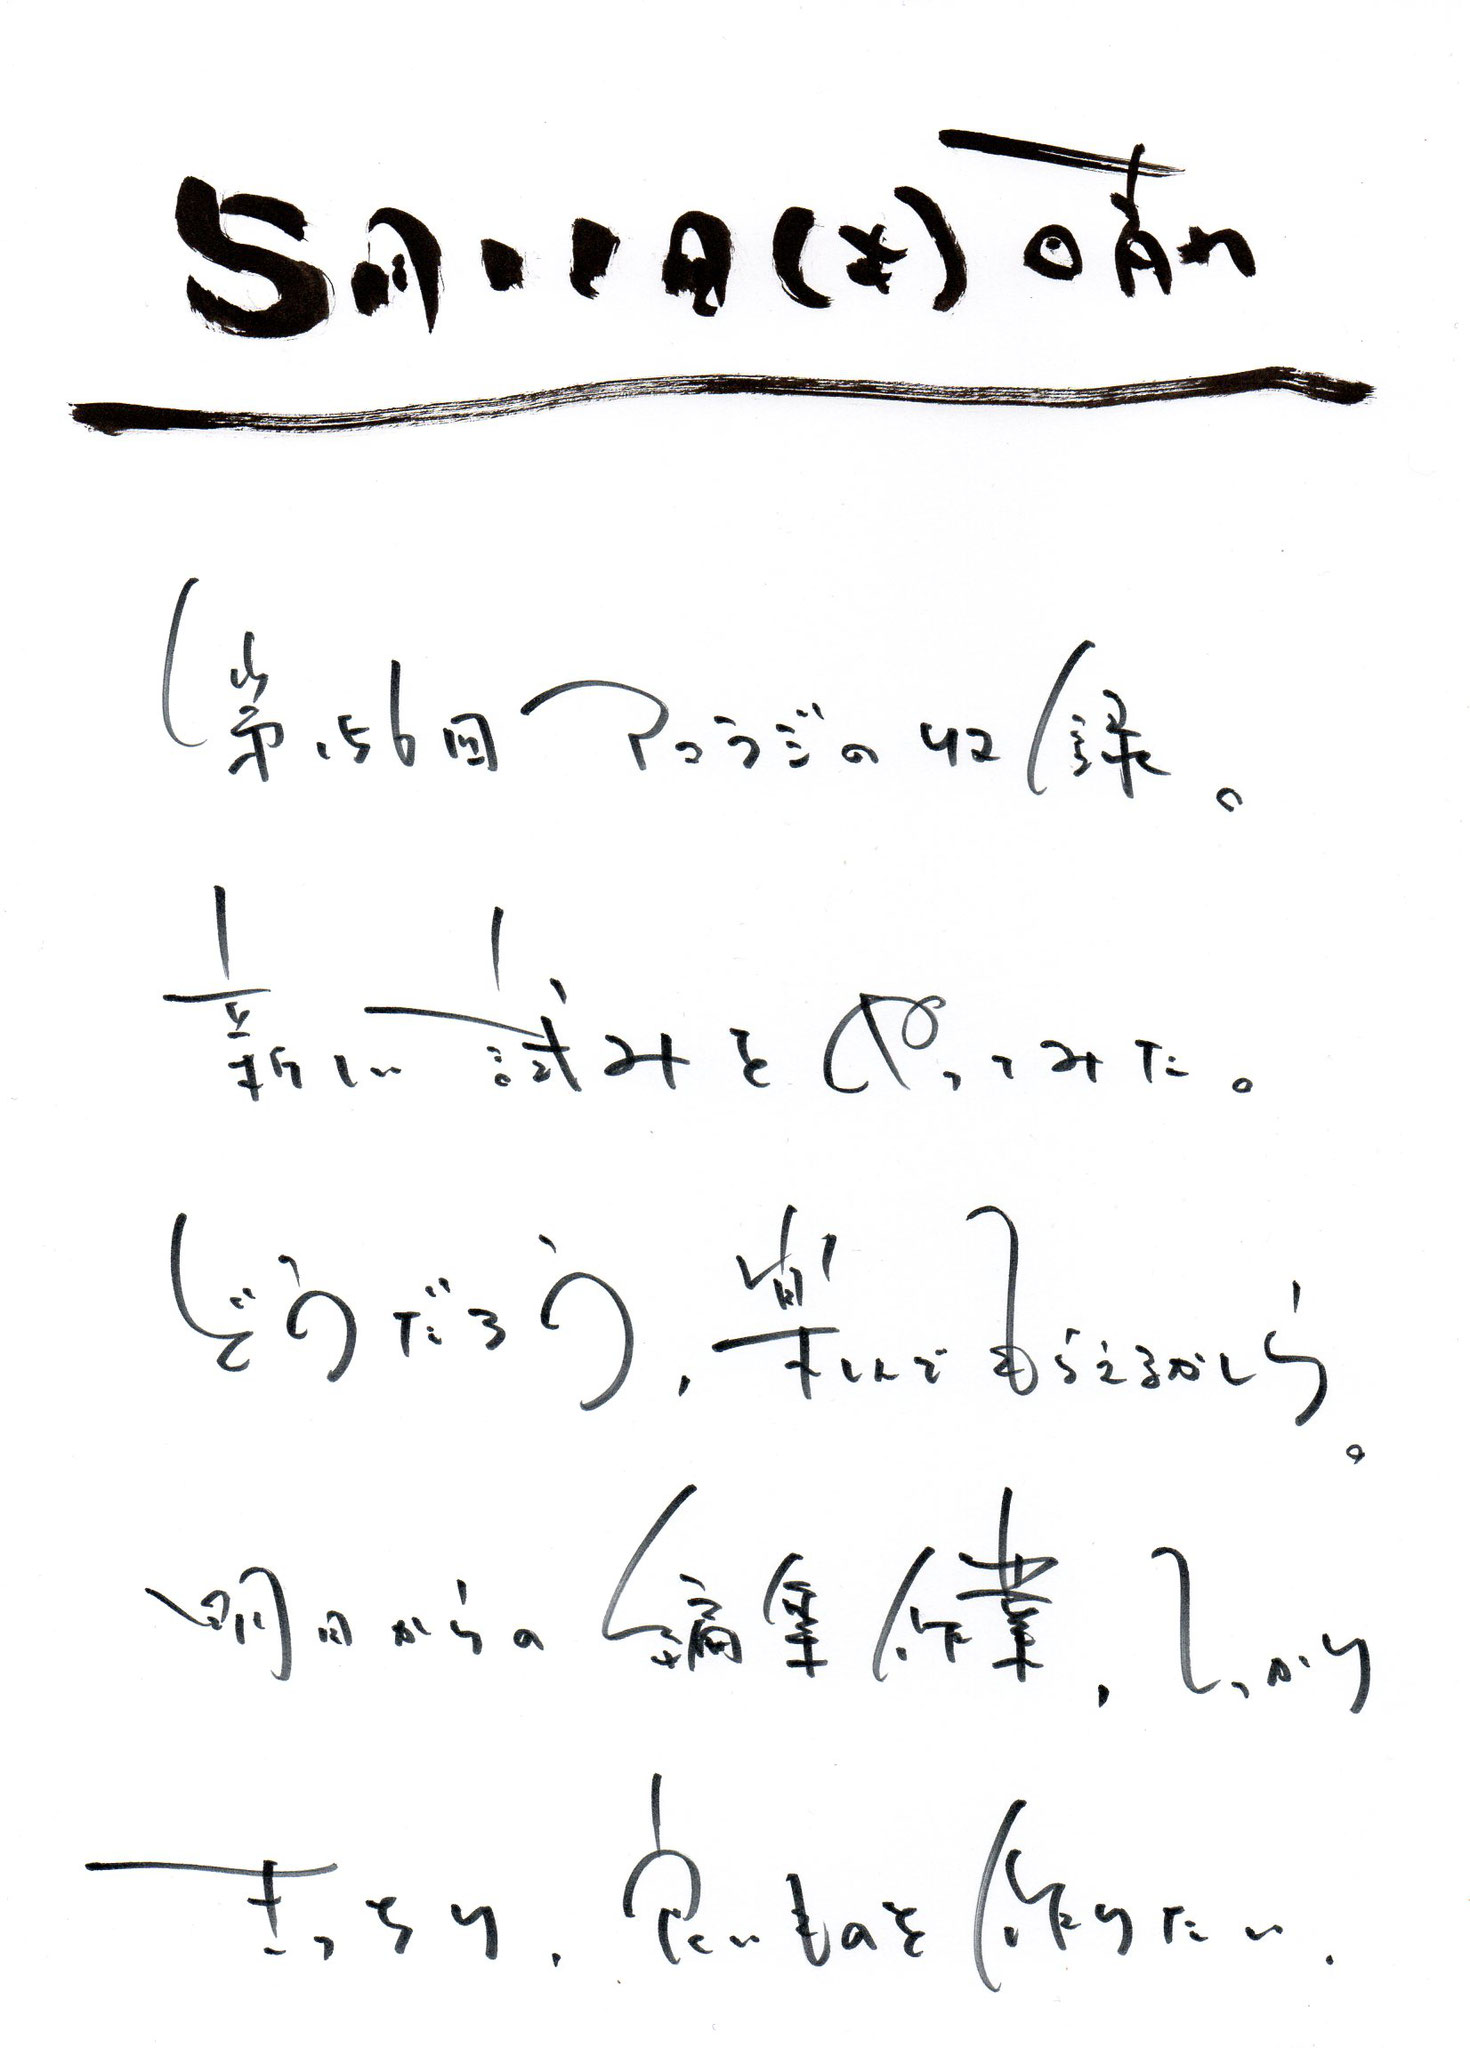 5月11日(土) 晴れ
第156回アコラジの収録。
新しい試みをやってみた。
どうだろう、楽しんでもらえるかしら。
明日からの編集作業、しっかり
きっちり、良いものを作りたい.